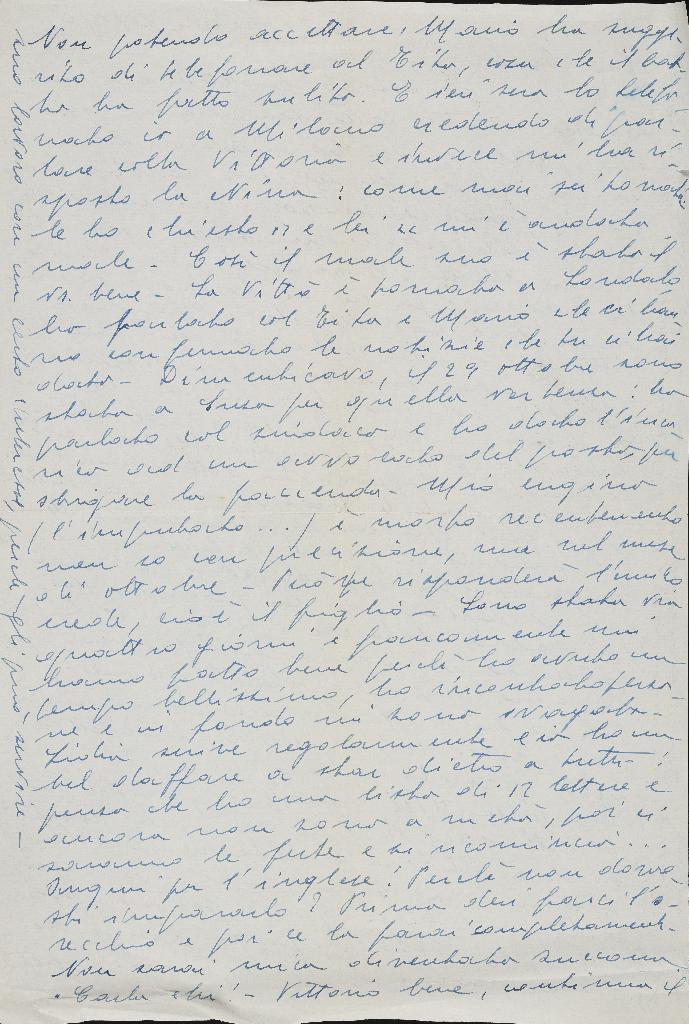 Non potendo accettare, Mario ha sugge-
rito di telefonare al Tito, cosa che il
ha fatto subito. E ieri sera ho telefo
nato io a Milano credendo di par-
lare colla Vittoria e invece mi ha ri-
sposto la Nina: come mai sei tornata
le ho chiesto io e lei mi è andata
male - Così il male suo è stato il
ns. bene - La Vitt^a è tornata a
ho parlato col Tito e Mario che ci han
no confermato le notizie che tu ci hai
dato - Dimenticavo, il 29 ottobre sono
stata a Susa per quella vertenza: ho
parlato col sindaco e ho dato l'inca
rico ad un avvocato del posto, per
sbrigare la faccenda - Mio cugino
(l'imputato ...) è morto recentemente
non so con precisione, ma nel mese
di ottobre - Però ne risponderà l'unico
erede, cioè il figlio - Sono stata via
quattro giorni e francamente mi
hanno fatto bene perché ho avuto un
tempo bellissimo, ho incontrato perso-
ne e in fondo mi sono svagata -
Lidia scrive regolarmente e io ho un
bel daffare a star dietro a tutti!
pensa che ho una lista di 12 lettere e
ancora non sono a metà, poi ci
saranno le feste e si ricomincia ...
Auguri per l'inglese! Perché non dovre
sti impararlo? Prima devi farci l'o-
recchio e poi ce la farai completamente.
Non sarai mica diventata zuccona
Carla eh! - Vittorio bene, continua il
suo lavoro con un certo interesse, perché gli può servire -